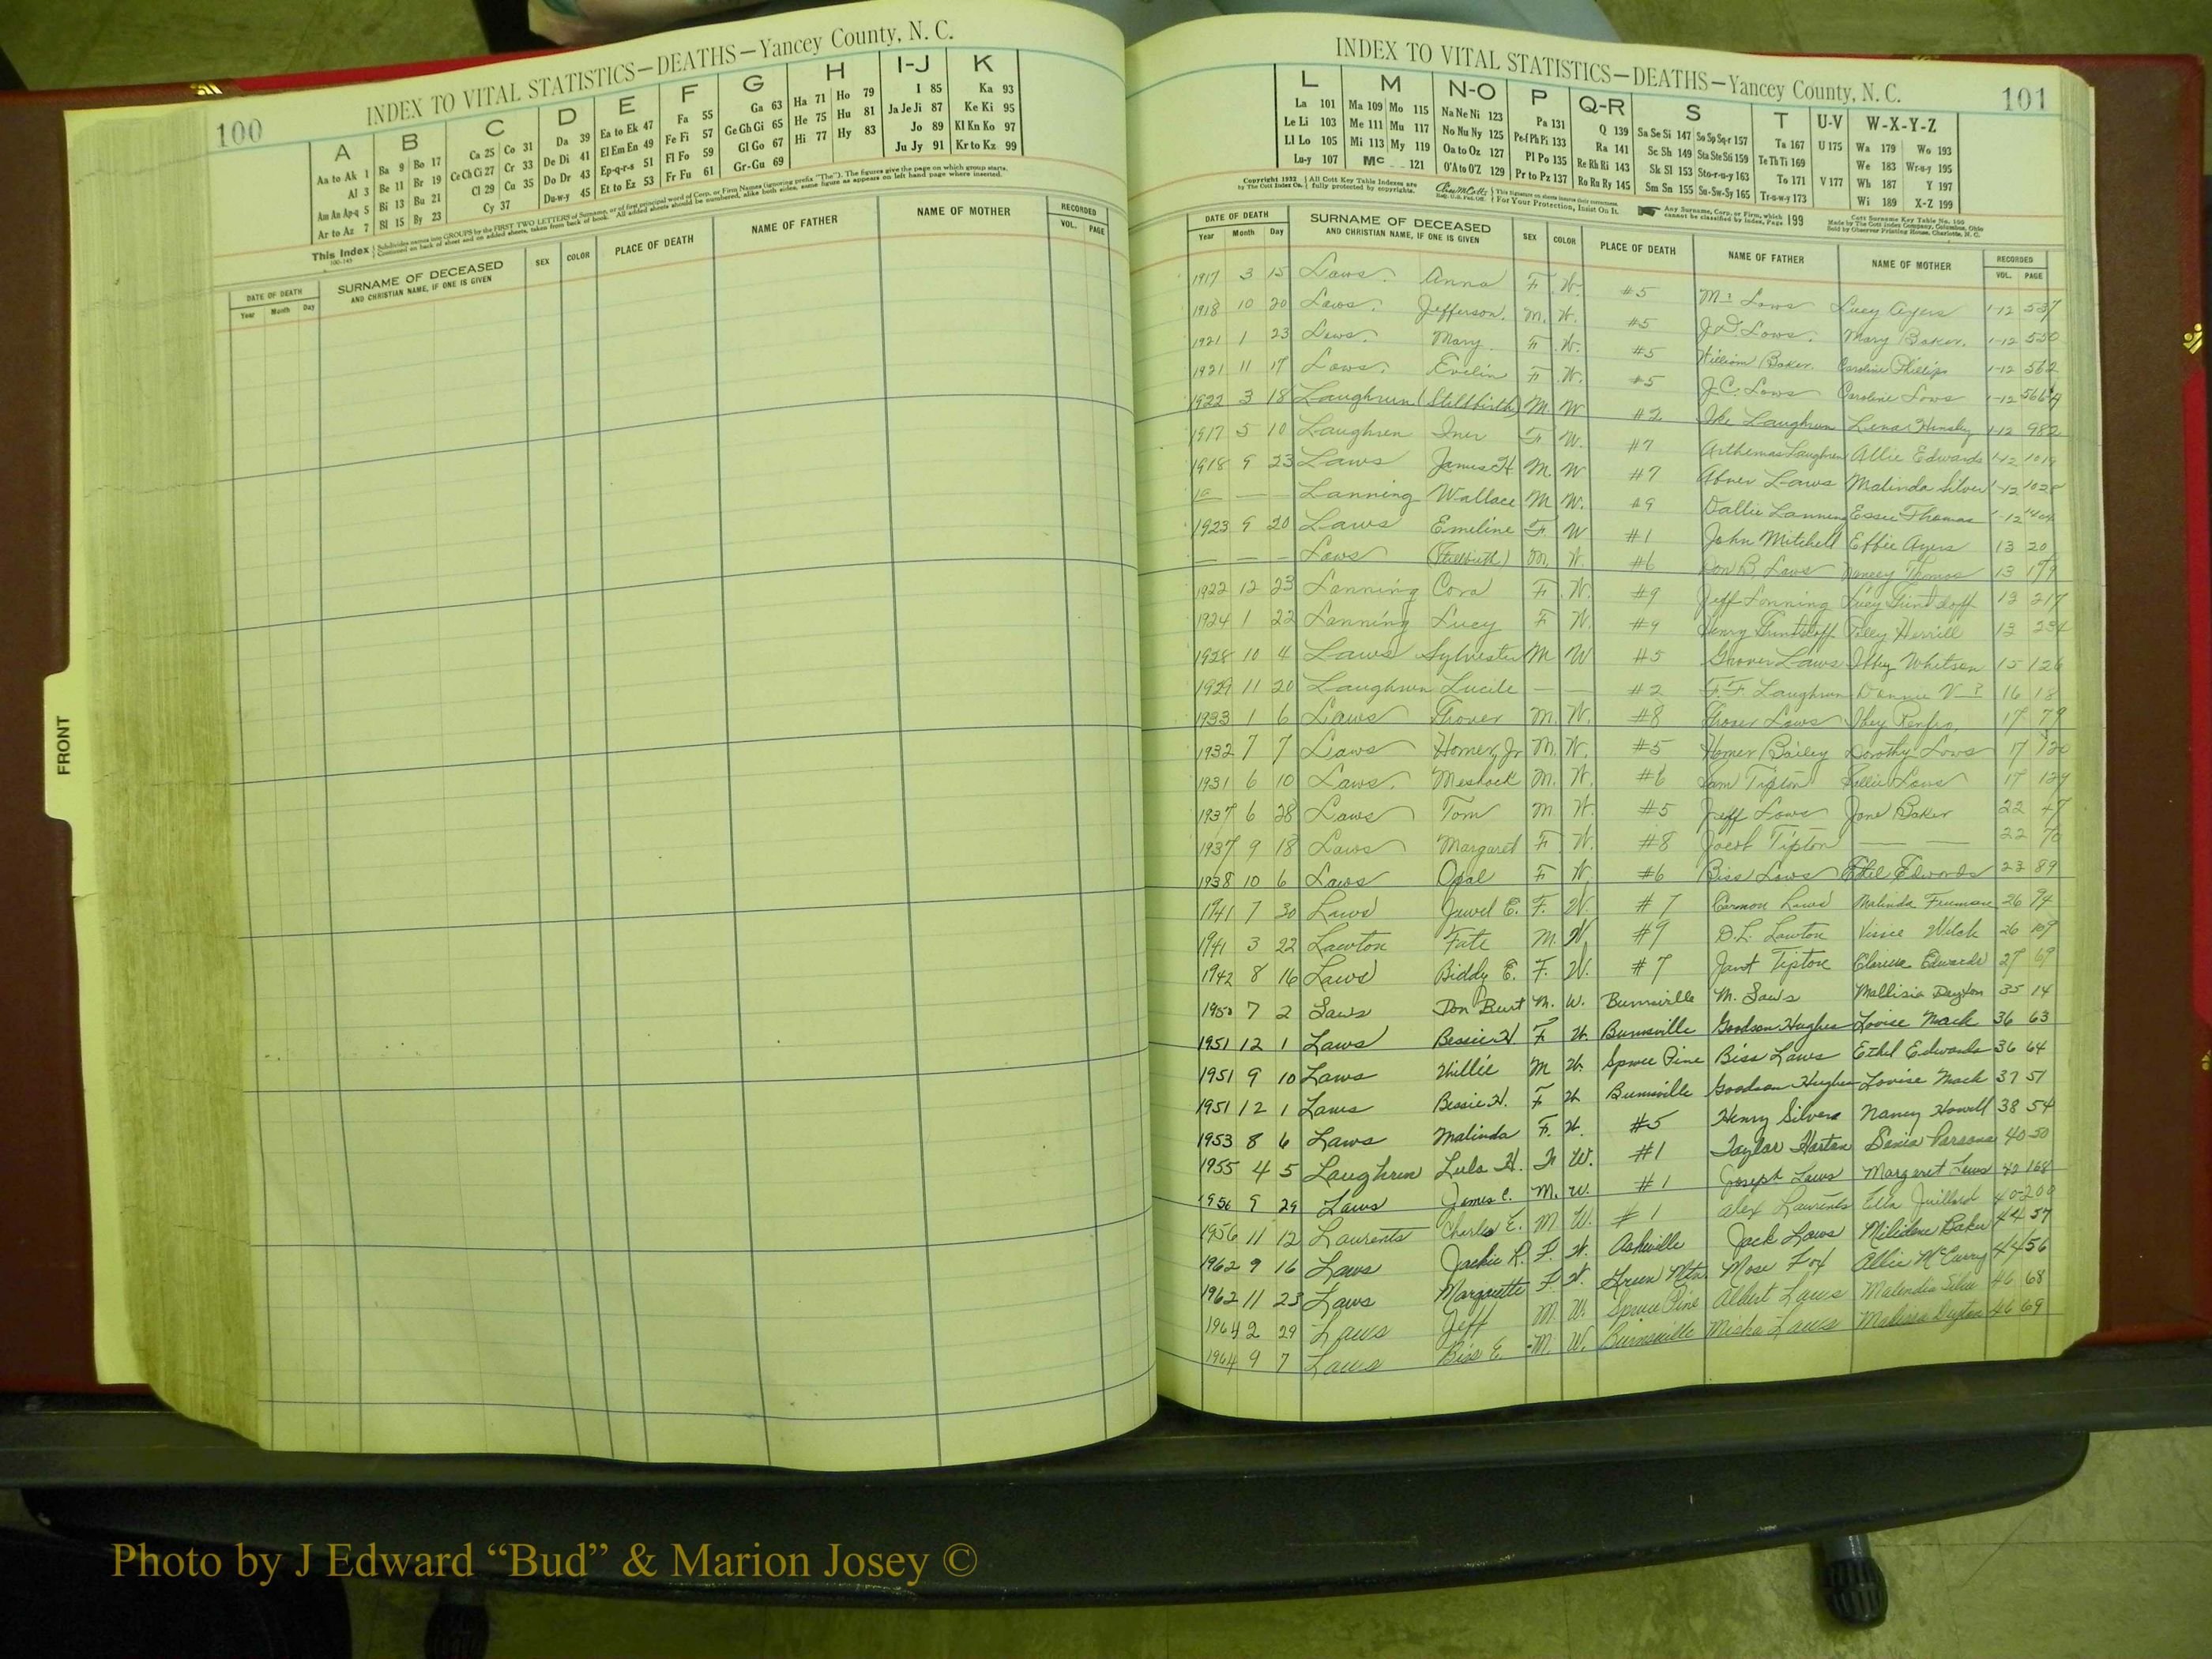 INDEX TO VITAL STATISTICS—DEATHS—Yancey County, N. C.
100
A B C D E F G H I-J K
Aa to Ak 1 Ba 9 Bo 17 Ca 25 Co 31 Da 39 Ea to Ek 47 Fa 55 Ga 63 Ha 71 Ho 79 I 85 Ka 93
Al 3 Be 11 Br 19 Ce Ch Ci 27 Cr 33 De Di 41 El Em En 49 Fe Fi 57 Ge Gh Gi 65 He 75 Hu 81 Ja Je Ji 87 Ke Ki 95
Am An Ap-q 5 Bi 13 Bu 21 Cl 29 Cu 35 Do Dr 43 Ep-q-r-s 51 Fl Fo 59 Gl Go 67 Hi 77 Hy 83 Jo 89 Kl Kn Ko 97
Ar to Az 7 Bl 15 By 23 Cy 37 Du-w-y 45 Et to Ez 53 Fr Fu 61 Gr-Gu 69 Ju Jy 91 Kr to Kz 99
This Index Subdivides names into GROUPS by the FIRST TWO LETTERS of Surname, or of first principal word of Corp. or Firm Names (ignoring prefix "The"). The figures give the page on which group starts.
Continued on back of sheet and on added sheets, taken from back of book. All added sheets should be numbered, alike both sides, same figure as appears on left hand page where inserted.
DATE OF DEATH SURNAME OF DECEASED AND CHRISTIAN NAME, IF ONE IS GIVEN SEX COLOR PLACE OF DEATH NAME OF FATHER NAME OF MOTHER RECORDED
Year Month Day VOL. PAGE
FRONT
INDEX TO VITAL STATISTICS—DEATHS—Yancey County, N. C.
101
L M N-O P Q-R S T U-V W-X-Y-Z
La 101 Ma 109 Mo 115 Na Ne Ni 123 Pa 131 Q 139 Sa Se Si 147 So Sp Sq-r 157 Ta 167 U 175 Wa 179 Wo 193
Le Li 103 Me 111 Mu 117 No Nu Ny 125 Pe-f Ph Pi 133 Ra 141 Sc Sh 149 Sta Ste Sti 159 Te Th Ti 169 We 183 Wr-u-y 195
Ll Lo 105 Mi 113 My 119 Oa to Oz 127 Pl Po 135 Re Rh Ri 143 Sk Sl 153 Sto-r-u-y 163 To 171 V 177 Wh 187 Y 197
Lu-y 107 Mc 121 O'A to O'Z 129 Pr to Pz 137 Ro Ru Ry 145 Sm Sn 155 Su-Sw-Sy 165 Tr-u-w-y 173 Wi 189 X-Z 199
Copyright 1932 by The Cott Index Co. All Cott Key Table Indexes are fully protected by copyrights. For Your Protection, Insist On It. Any Surname, Corp. or Firm, which cannot be classified by Index, Page 199
Cott Surname Key Table No. 100
Made by The Cott Index Company, Columbus, Ohio
Sold by Observer Printing House, Charlotte, N. C.
DATE OF DEATH SURNAME OF DECEASED AND CHRISTIAN NAME, IF ONE IS GIVEN SEX COLOR PLACE OF DEATH NAME OF FATHER NAME OF MOTHER RECORDED
Year Month Day VOL. PAGE
1917 3 15 Laws Anna F. W. #5 Laws Lucy Ayers 1-12 537
1918 10 20 Laws Jefferson M. W. #5 Laws Mary Baker 1-12 550
1921 1 23 Laws Mary F. W. #5 William Baker Caroline Phillips 1-12 562
1921 11 17 Laws Evelin F. W. #5 J.C. Laws Caroline Laws 1-12
1922 3 18 Laughrun (Stillbirth) M W #2 Ike Laughrun Lena Hensley 1-12 982
1917 5 10 Laughren Iner F W. #7 Arthemas Laughren Allie Edwards 1-12
1918 9 23 Laws James H M W #7 Abner Laws Malinda Silver 1-12 1028
— — Lanning Wallace M W. #9 Dallie Lanning Essie Thomas 1-12
1923 9 20 Laws Emeline F W #1 John Mitchell Effie Ayers 13 20
— — — Laws (Stillbirth) M W. #6 Don B. Laws Nancy Thomas 13
1922 12 23 Lanning Cora F W. #9 Jeff Lanning Lucy 13 217
1924 1 22 Lanning Lucy F W. #9 Henry Polly Herrill 13 234
1928 10 4 Laws Sylvester M W #5 Grover Laws Whitson 15 126
1929 11 20 Laughrun Lucile — — #2 F.F Laughrun V—? 16 18
1933 1 6 Laws Grover M. W. #8 Grover Laws Renfro 17 79
1932 7 7 Laws Homer, Jr M. W. #5 Homer Bailey Dorothy Laws 17 120
1931 6 10 Laws Meshack M. W. #6 Sam Tipton Laws 17
1937 6 28 Laws Tom M W. #5 Jeff Laws Jane Baker 22 47
1937 9 18 Laws Margaret F W. #8 Jacob Tipton — — 22 70
1938 10 6 Laws Opal F W. #6 Biss Laws Ethel Edwards 23 89
1941 7 30 Laws Jewel E. F. W. #7 Carmon Laws Malinda Freeman 26 94
1941 3 22 Lawton Fate M. W #9 D.L. Lawton Welch 26 109
1942 8 16 Laws Biddy E. F. W. #7 Tipton Edwards 27 69
1950 7 2 Laws Don Burt M. W. Burnsville M. Laws Mallisia Deyton 35 14
1951 12 1 Laws Bessie H. F W. Burnsville Goodson Hughes Lovise Mack 36 63
1951 9 10 Laws Willie M W. Spruce Pine Biss Laws Ethel Edwards 36 64
1951 12 1 Laws Bessie H. F W Burnsville Goodson Hughes Lovise Mack 37 51
1953 8 6 Laws Malinda F. W. #5 Henry Silvers Nancy Howell 38 54
1955 4 5 Laughrun Lula H. F W. #1 Taylor Horton Parsons 40 50
1956 9 29 Laws James C. M. W. #1 Joseph Laws Margaret Laws 42 168
1956 11 12 Laurents Charles E. M W. #1 Alex Laurents Ella 40-200
1962 9 16 Laws Jackie R. F. W. Asheville Jack Laws Baker 44 57
1962 11 23 Laws Margrette F. W. Green Mtn. Mose Fox Allie McCurry 44 56
1964 2 29 Laws Jeff M W. Spruce Pine Albert Laws Malendia 46 68
1964 9 7 Laws Biss E. M. W. Burnsville Misha Laws Malissa Deyton 46 69
Photo by J Edward “Bud” & Marion Josey ©